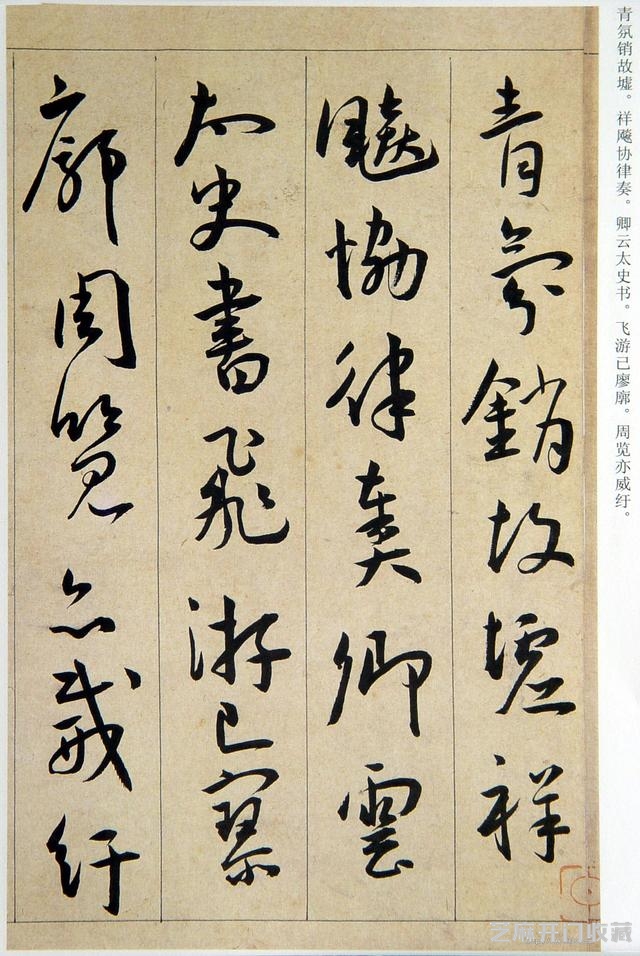 青氛销故墟。祥飚协律奏。卿云太史书。飞游已廖廓。周览亦威纡。
青氛銷故墟祥
飈恊律奏卿雲
太史書飛游已寥
廓周覽亦威紆
芝麻开门收藏